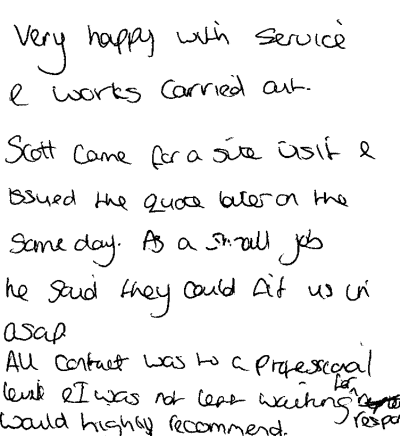 Very happy with service
& works carried out.
Scott came for a site visit &
issued the quote later on the
same day. As a small job
he said they could fit us in
asap
All contact was to a professional
level & I was not left waiting for
respo
would highly recommend.